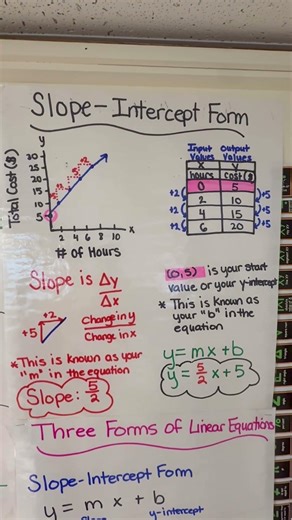 Slope-Intercept Form
y
Total Cost ($)
30
25
20
15
10
5
2 4 6 8 10 x
# of Hours
Input Values Output Values
x y
hours cost($)
0 5
2 10
4 15
6 20
+2 +5
+2 +5
+2 +5
Slope is Δy
Δx
+2
+5
Change in y
Change in x
*This is known as your
"m" in the equation
Slope: 5/2
(0,5) is your start
value or your y-intercept
* This is known as
your "b" in the
equation
y=mx+b
y=5/2x+5
Three Forms of Linear Equations
Slope-Intercept Form
y = m x + b
Slope y-intercept